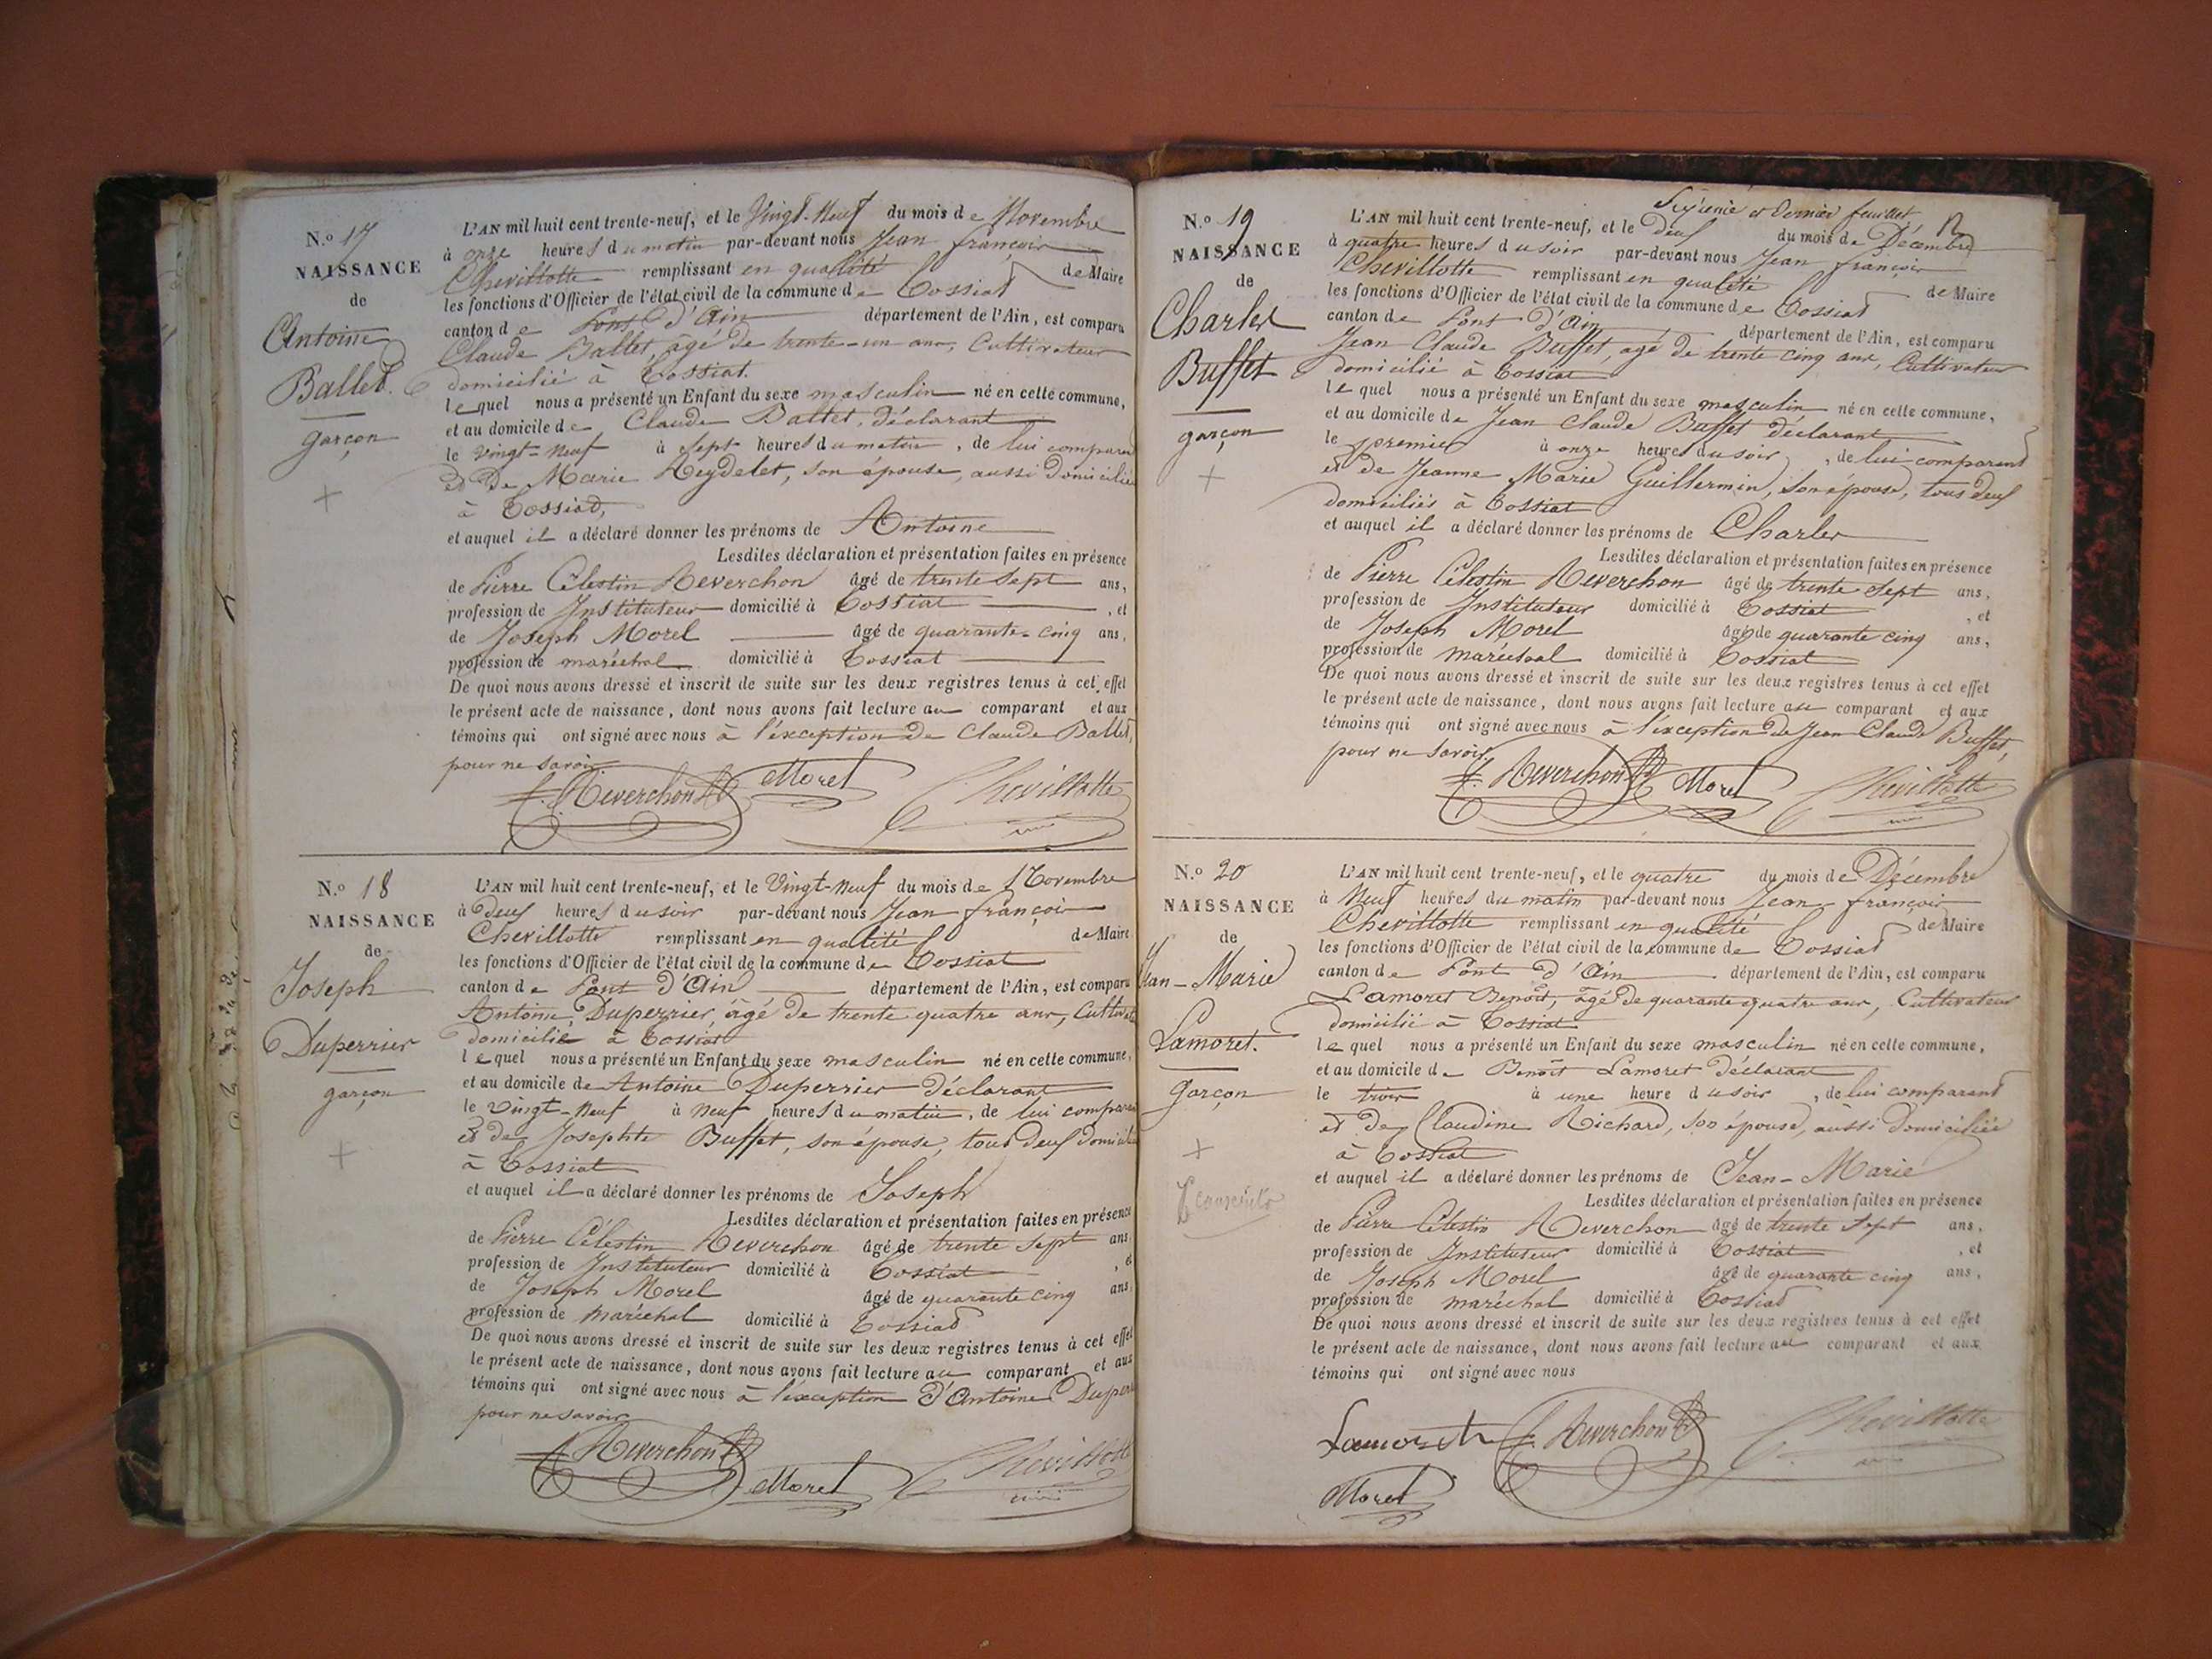 N.º 17
NAISSANCE
de
Antoine
Ballet.
garçon
L'AN mil huit cent trente-neuf, et le Vingt-Neuf du mois de Novembre
à onze heures du matin par-devant nous Jean françois
Chevillotte remplissant en qualité de Maire
les fonctions d'Officier de l'état civil de la commune de Tossiat
canton de Pont d'Ain département de l'Ain, est comparu
Claude Ballet, agé de trente-un ans, Cultivateur
domicilié à Tossiat.
lequel nous a présenté un Enfant du sexe masculin né en cette commune,
et au domicile de Claude Ballet, déclarant
le vingt-neuf à Sept heures du matin, de lui comparant
et de Marie Reydelet, son épouse, aussi domiciliée
à Tossiat,
et auquel il a déclaré donner les prénoms de Antoine
Lesdites déclaration et présentation faites en présence
de Pierre Célestin Reverchon âgé de trente Sept ans,
profession de Instituteur domicilié à Tossiat, et
de Joseph Morel âgé de quarante-cinq ans,
profession de maréchal domicilié à Tossiat
De quoi nous avons dressé et inscrit de suite sur les deux registres tenus à cet effet
le présent acte de naissance, dont nous avons fait lecture au comparant et aux
témoins qui ont signé avec nous à l'éxception de Claude Ballet,
pour ne savoir
Reverchon Morel Chevillotte
N.º 18
NAISSANCE
de
Joseph
Duperrier
garçon
L'AN mil huit cent trente-neuf, et le Vingt-Neuf du mois de Novembre
à Deux heures du soir par-devant nous Jean françois
Chevillotte remplissant en qualité de Maire
les fonctions d'Officier de l'état civil de la commune de Tossiat
canton de Pont d'Ain département de l'Ain, est comparu
Antoine Duperrier âgé de trente quatre ans,
domicilié à Tossiat
lequel nous a présenté un Enfant du sexe masculin né en cette commune,
et au domicile de Antoine Duperrier déclarant
le Vingt-Neuf à Neuf heures du matin, de lui comparant
et de Josephte Buffet, son épouse, tous Deux
à Tossiat
et auquel il a déclaré donner les prénoms de Joseph
Lesdites déclaration et présentation faites en présence
de Pierre Célestin Reverchon âgé de trente Sept ans
profession de Instituteur domicilié à Tossiat, et
de Joseph Morel âgé de quarante cinq ans,
profession de maréchal domicilié à Tossiat
De quoi nous avons dressé et inscrit de suite sur les deux registres tenus à cet effet
le présent acte de naissance, dont nous avons fait lecture au comparant et aux
témoins qui ont signé avec nous à l'éxception d'Antoine
pour ne savoir
Reverchon Morel Chevillotte
Sixième et Dernier feuillet
N.º 19
NAISSANCE
de
Charles
Buffet
garçon
L'AN mil huit cent trente-neuf, et le Deux du mois de Décembre
à quatre heures du soir par-devant nous Jean françois
Chevillotte remplissant en qualité de Maire
les fonctions d'Officier de l'état civil de la commune de Tossiat
canton de Pont d'Ain département de l'Ain, est comparu
Jean Claude Buffet, agé de trente cinq ans, Cultivateur
domicilié à Tossiat
lequel nous a présenté un Enfant du sexe masculin né en cette commune,
et au domicile de Jean Claude Buffet déclarant
le premier à onze heures du soir, de lui comparant
et de Jeanne Marie Guillermin, son épouse, tous deux
domiciliés à Tossiat
et auquel il a déclaré donner les prénoms de Charles
Lesdites déclaration et présentation faites en présence
de Pierre Célestin Reverchon âgé de trente Sept ans,
profession de Instituteur domicilié à Tossiat, et
de Joseph Morel âgé de quarante cinq ans,
profession de maréchal domicilié à Tossiat
De quoi nous avons dressé et inscrit de suite sur les deux registres tenus à cet effet
le présent acte de naissance, dont nous avons fait lecture au comparant et aux
témoins qui ont signé avec nous à l'éxception de Jean Claude Buffet,
pour ne savoir,
Reverchon Morel Chevillotte
N.º 20
NAISSANCE
de
Jean-Marie
Lamoret.
garçon
L'AN mil huit cent trente-neuf, et le quatre du mois de Décembre
à Neuf heures du matin par-devant nous Jean-françois
Chevillotte remplissant en qualité de Maire
les fonctions d'Officier de l'état civil de la commune de Tossiat
canton de Pont d'Ain département de l'Ain, est comparu
Lamoret Benoît, âgé de quarante quatre ans, Cultivateur
domicilié à Tossiat
lequel nous a présenté un Enfant du sexe masculin né en cette commune,
et au domicile de Benoît Lamoret déclarant
le trois à une heure du soir, de lui comparant
et de Claudine Richard, son épouse, aussi domiciliée
à Tossiat
et auquel il a déclaré donner les prénoms de Jean-Marie
Lesdites déclaration et présentation faites en présence
de Pierre Célestin Reverchon âgé de trente Sept ans,
profession de Instituteur domicilié à Tossiat, et
de Joseph Morel âgé de quarante cinq ans,
profession de maréchal domicilié à Tossiat
De quoi nous avons dressé et inscrit de suite sur les deux registres tenus à cet effet
le présent acte de naissance, dont nous avons fait lecture au comparant et aux
témoins qui ont signé avec nous
Lamoret Reverchon Chevillotte
Morel